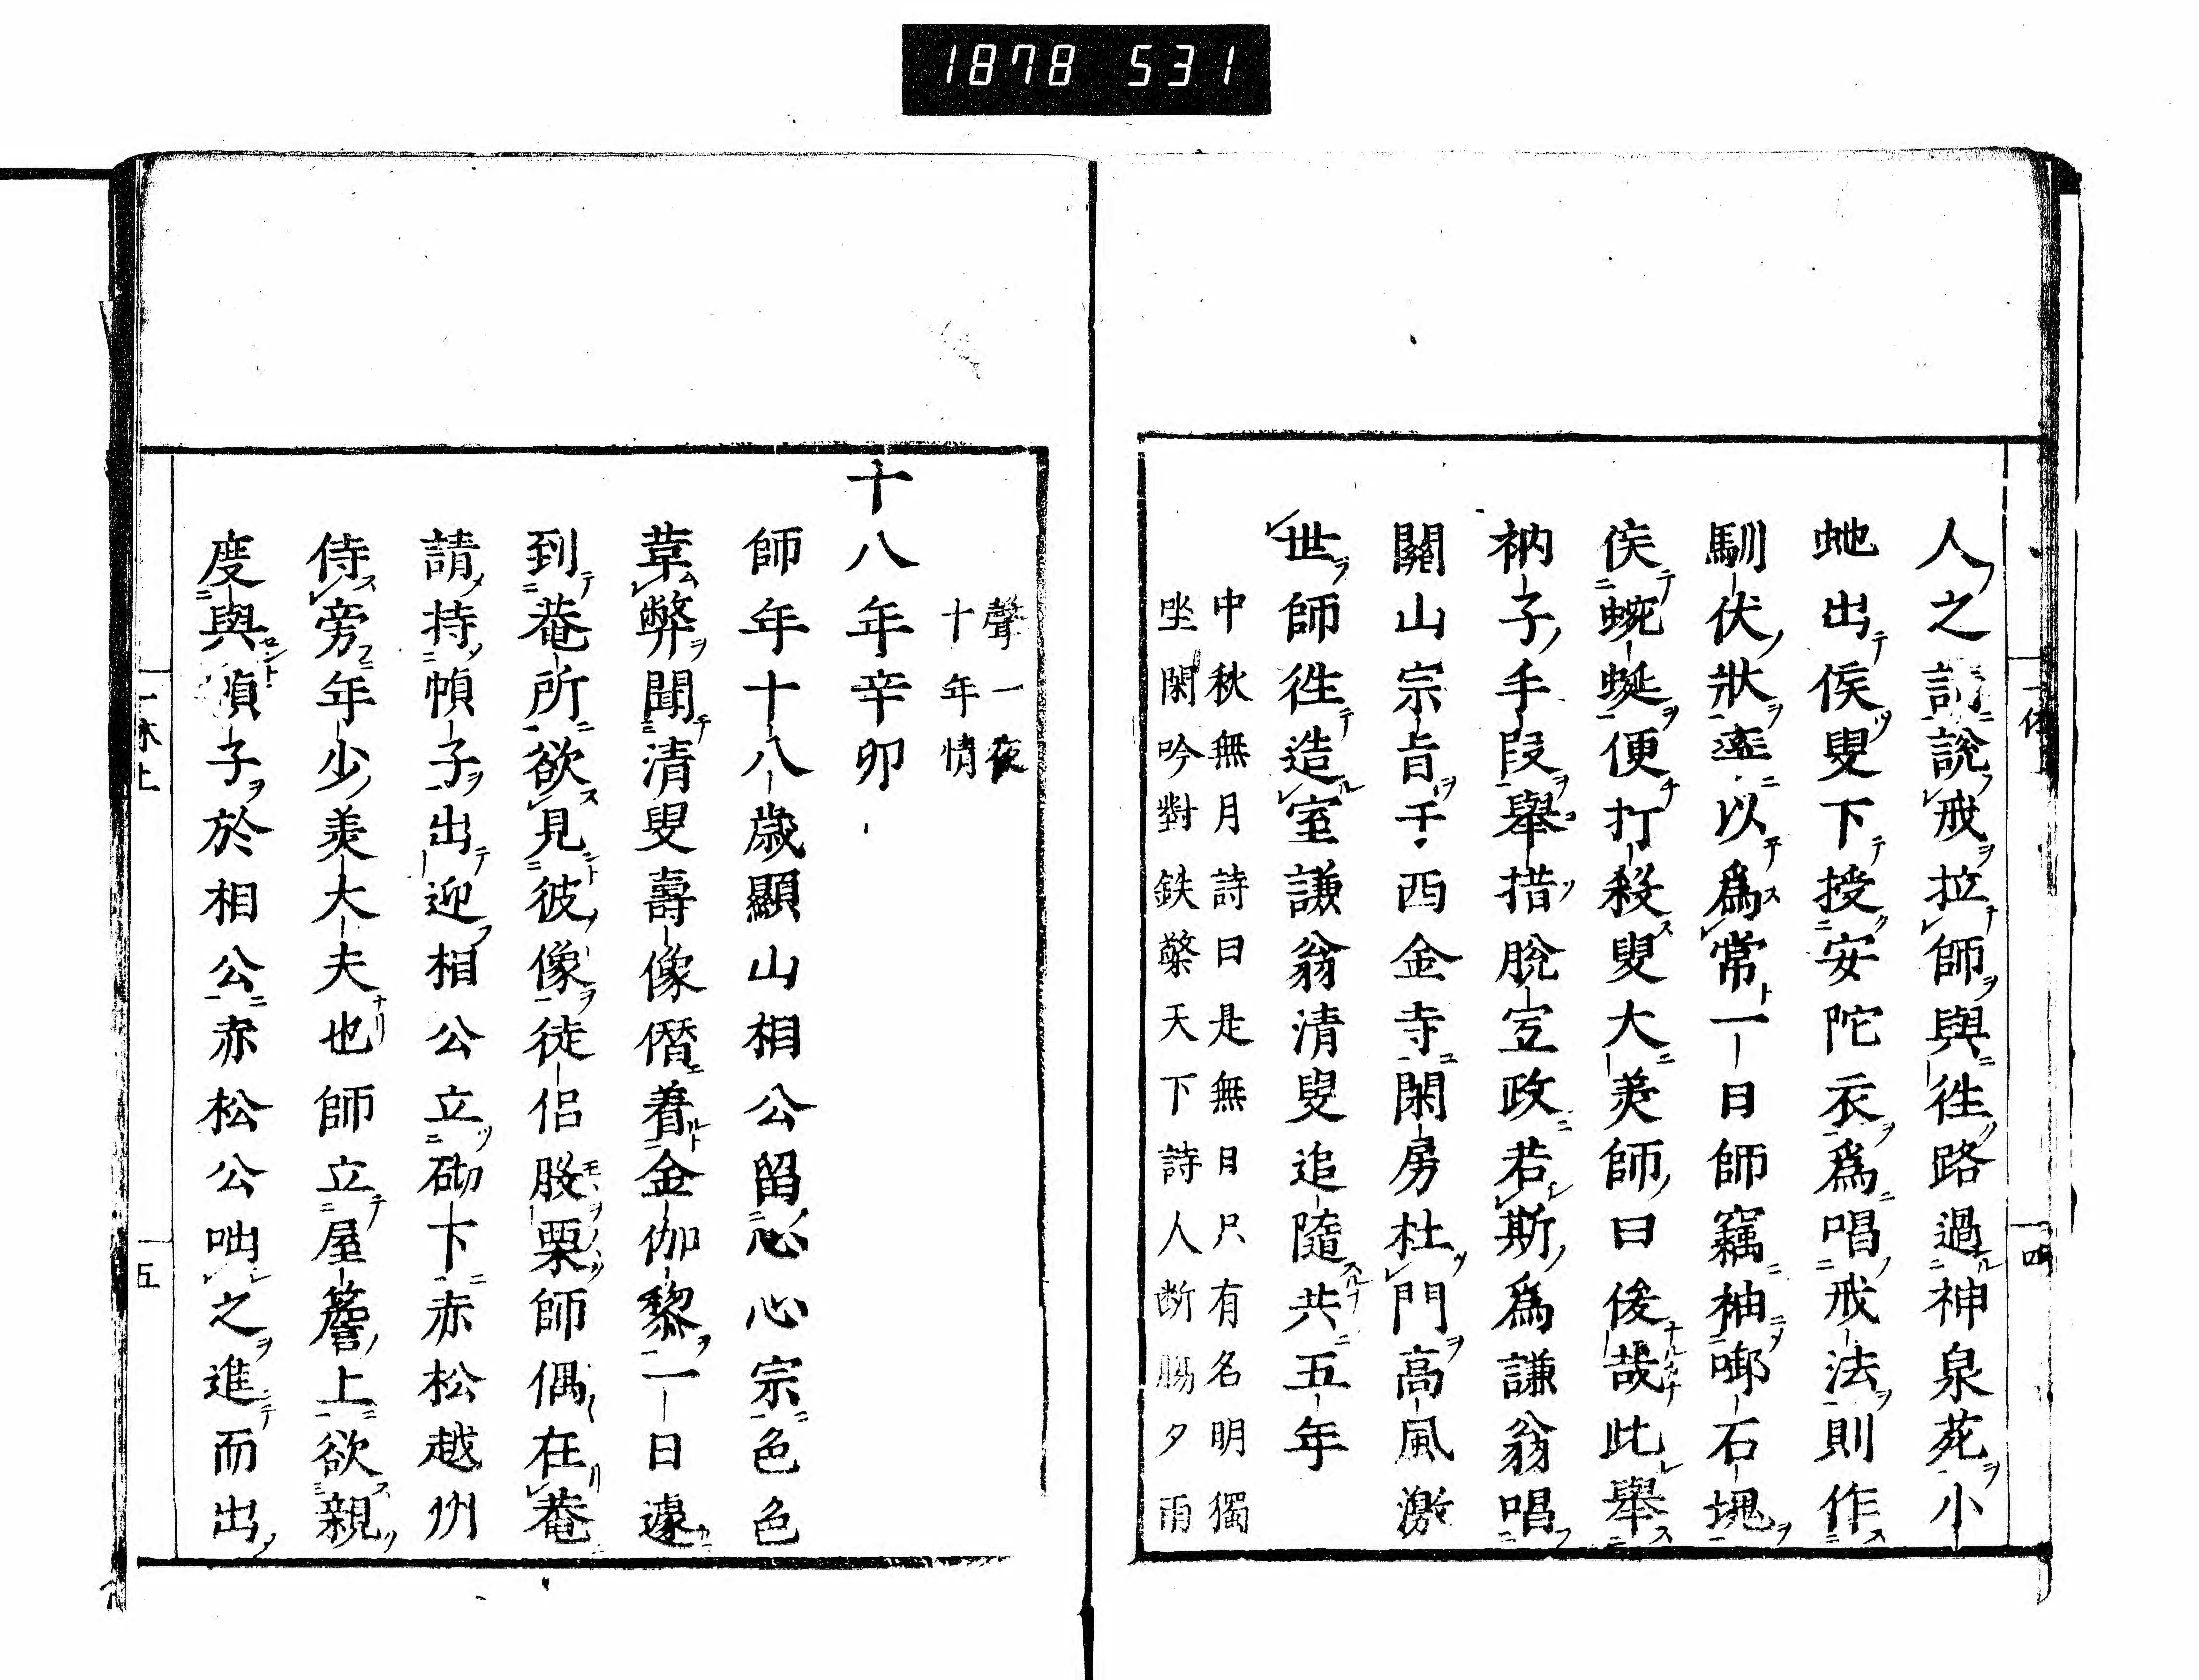 1878 531
人之請說戒拉師與徃路過神泉苑小
虵出俟叟下授安陀衣爲唱戒法則作
馴伏狀逝以爲常一日師竊袖啣石塊
俟蜿蜒便打殺叟大羙師曰俊哉此舉
衲子手段舉措脫空政若斯爲謙翁唱
關山宗旨于西金寺閑房杜門高風激
世師徃造室謙翁清叟追隨共五年
中秋無月詩曰是無月只有名明獨
坐閑吟對鉄檠天下詩人断膓夕雨
四
聲一夜
十年情
十八年辛卯
師年十八歲顯山相公留心心宗色色
革弊聞清叟壽像僭着金伽黎一日遽
到菴所欲見彼像徒侣股栗師偶在菴
請持幀子出迎相公立砌下赤松越州
侍旁年少羙大夫也師立屋簷上欲親
度與幀子於相公赤松公咄之進而出
一休上
五